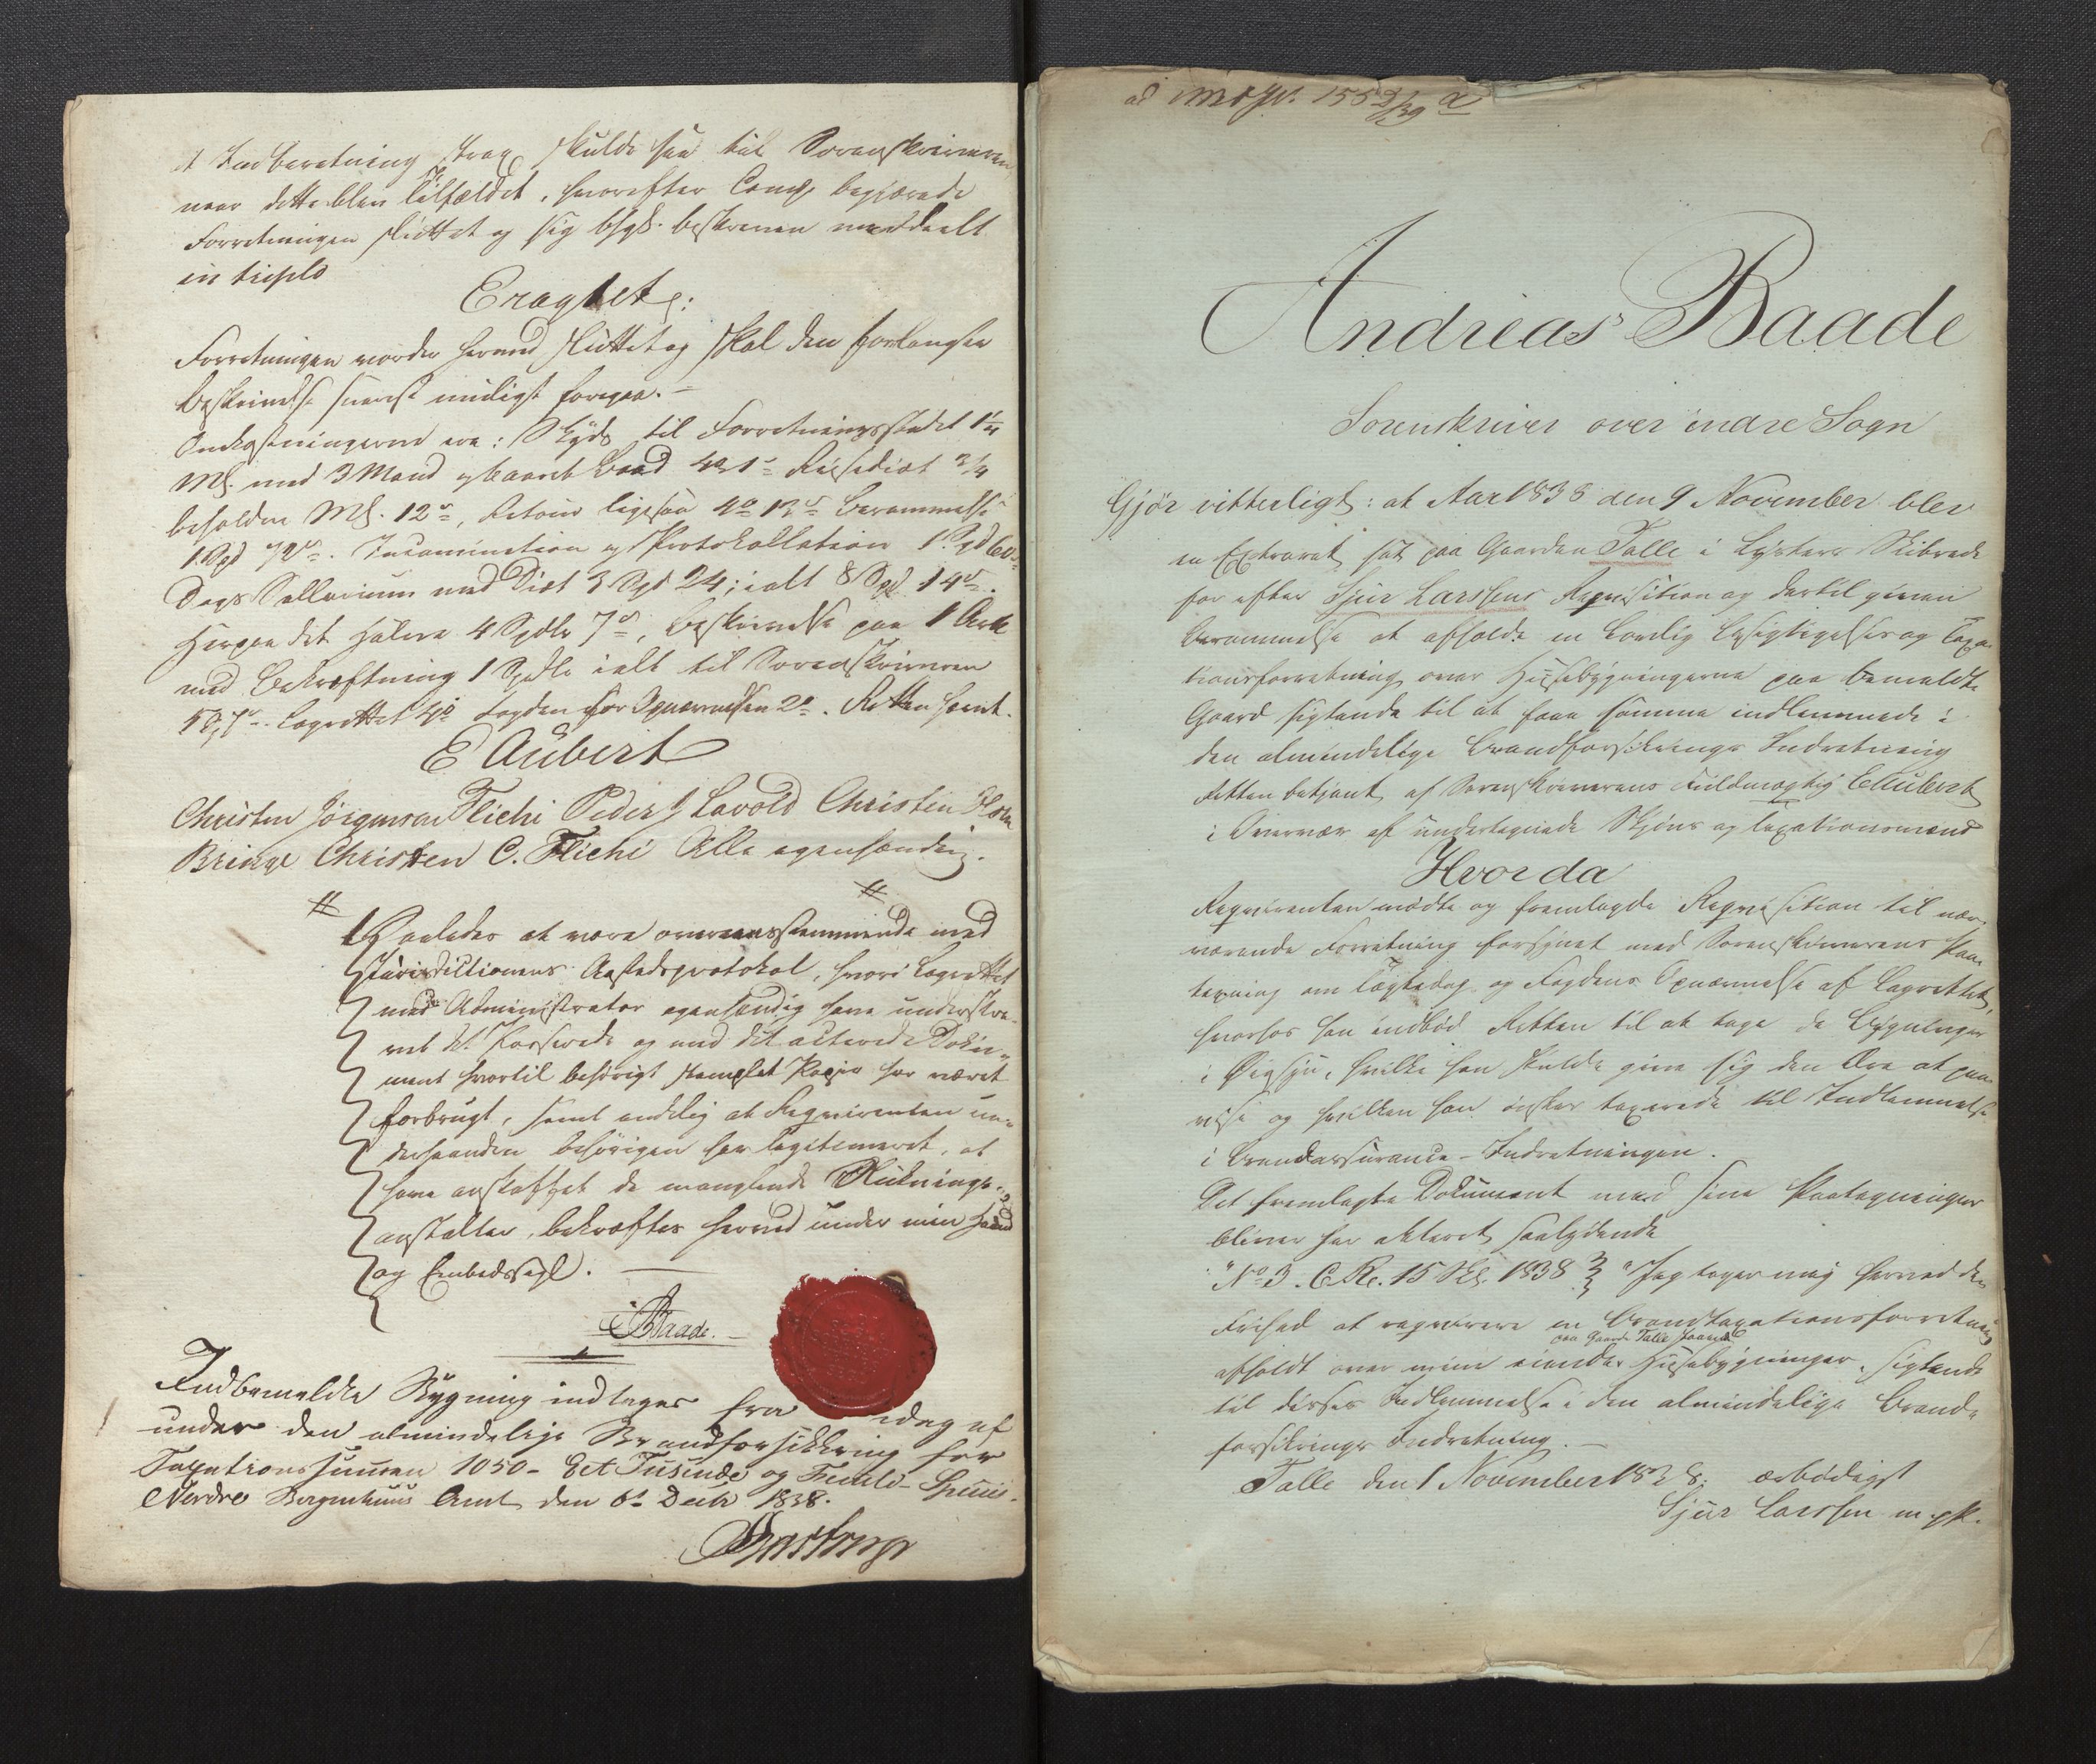 t Indberetning strax skulde skee til Sorenskriveren
naar dette blev tilfældet, hvorefter Comp. begjærede
Forretningen sluttet og sig beskreven meddeelt
in triplo
Eragtet:
Forretningen vorder herved sluttet og skal den forlangte
Beskrivelse snarest muligt foregaa. –
Omkostningerne ere: Skyds til Forretningsstedet 1¼
Mil med 3 Mand og baaret Baad Reisediæt
beholden Ml. 12 s, Retour ligesaa Berammelse
1 Spd 72 s. Incamination og Protokollation 1 Spd 60 s
Dags Sallarium med Diæt 3 Spd 24; ialt 8 Spd 14 s.
Herpaa det Halve 4 Spdlr 7 s, Beskrivelse paa 1 Ark
med Bekræftning 1 Spdlr ialt til Sorenskriveren
5 7 s. Lagrettet Fogden for Opnævnelsen Retten hævet.
E Aubert
Christen Jörgensen Flichi Peder J Lavold Christen
Bringe Christen C. Flichi Alle egenhændig.
Saaledes at være overeensstemmende med
Jurisdictionens Aastedsprotokol, hvori Lagrettet
med Administrator egenhændig have underskre-
vet det Passerede og med det acterede Doku-
ment hvortil behörigt stemplet Papir har været
forbrugt, samt endelig at Reqvirenten un-
derhaanden behörigen har legitimeret, at
have anskaffet de manglende Sluknings-
anstalter, bekræftes herved under min Haand
og Embedssegl.
ABaade.
Indbemeldte Bygning indtages fra idag af
under den almindelige Brandforsikkring for
Taxationssummen 1050 – Eet Tusinde og Femti – Species.
Nordre Bergenhuus Amt den 6te Decbr 1838.
ad 1552/39
Andreas Baade
Sorenskriver over indre Sogn
Gjör vitterligt: at Aar 1838 den 9 November blev
en Extraret sat paa Gaarden Talle i Lysters Skibrede
for efter Sjur Larssens Reqvisition og dertil given
Berammelse at afholde en lovlig Besigtigelses og Taxa-
tionsforretning over Huusebygningerne paa bemeldte
Gaard sigtende til at faae samme indlemmede i
den almindelige Brandforsikrings Indretning
Retten betjent af Sorenskriverens Fuldmægtig E Aubert
i Overvær af undertegnede Skjöns og Taxationsmænd
Hvor da
Reqvirenten mödte og fremlagde Reqvisition til nær-
værende Forretning forsynet med Sorenskriverens Paa-
tegning om Tægtedag og Fogdens Opnævnelse af Lagrettet,
hvorhos han indböd Retten til at tage de Bygninger
i Öiesyn, hvilke han skulde give sig den Ære at paa-
vise og hvilken han önsker taxerede til Indlemmelse
i Brandassurance-Indretningen.
Det fremlagte Dokument med sine Paategninger
bliver her akteret saalydende
"No 3. C Kl. 15 Sk. 1838 "Jeg tager mig herved den
Frihed at reqvirere en Brandtaxationsforretning
paa Gaarden Talle
afholdt over mine eiende Huusebygninger, sigtende
til disses Indlemmelse i den almindelige Brand-
forsikrings Indretning. –
Talle den 1 November 1838. ærbödigst
Sjur Larssen m. p. P.